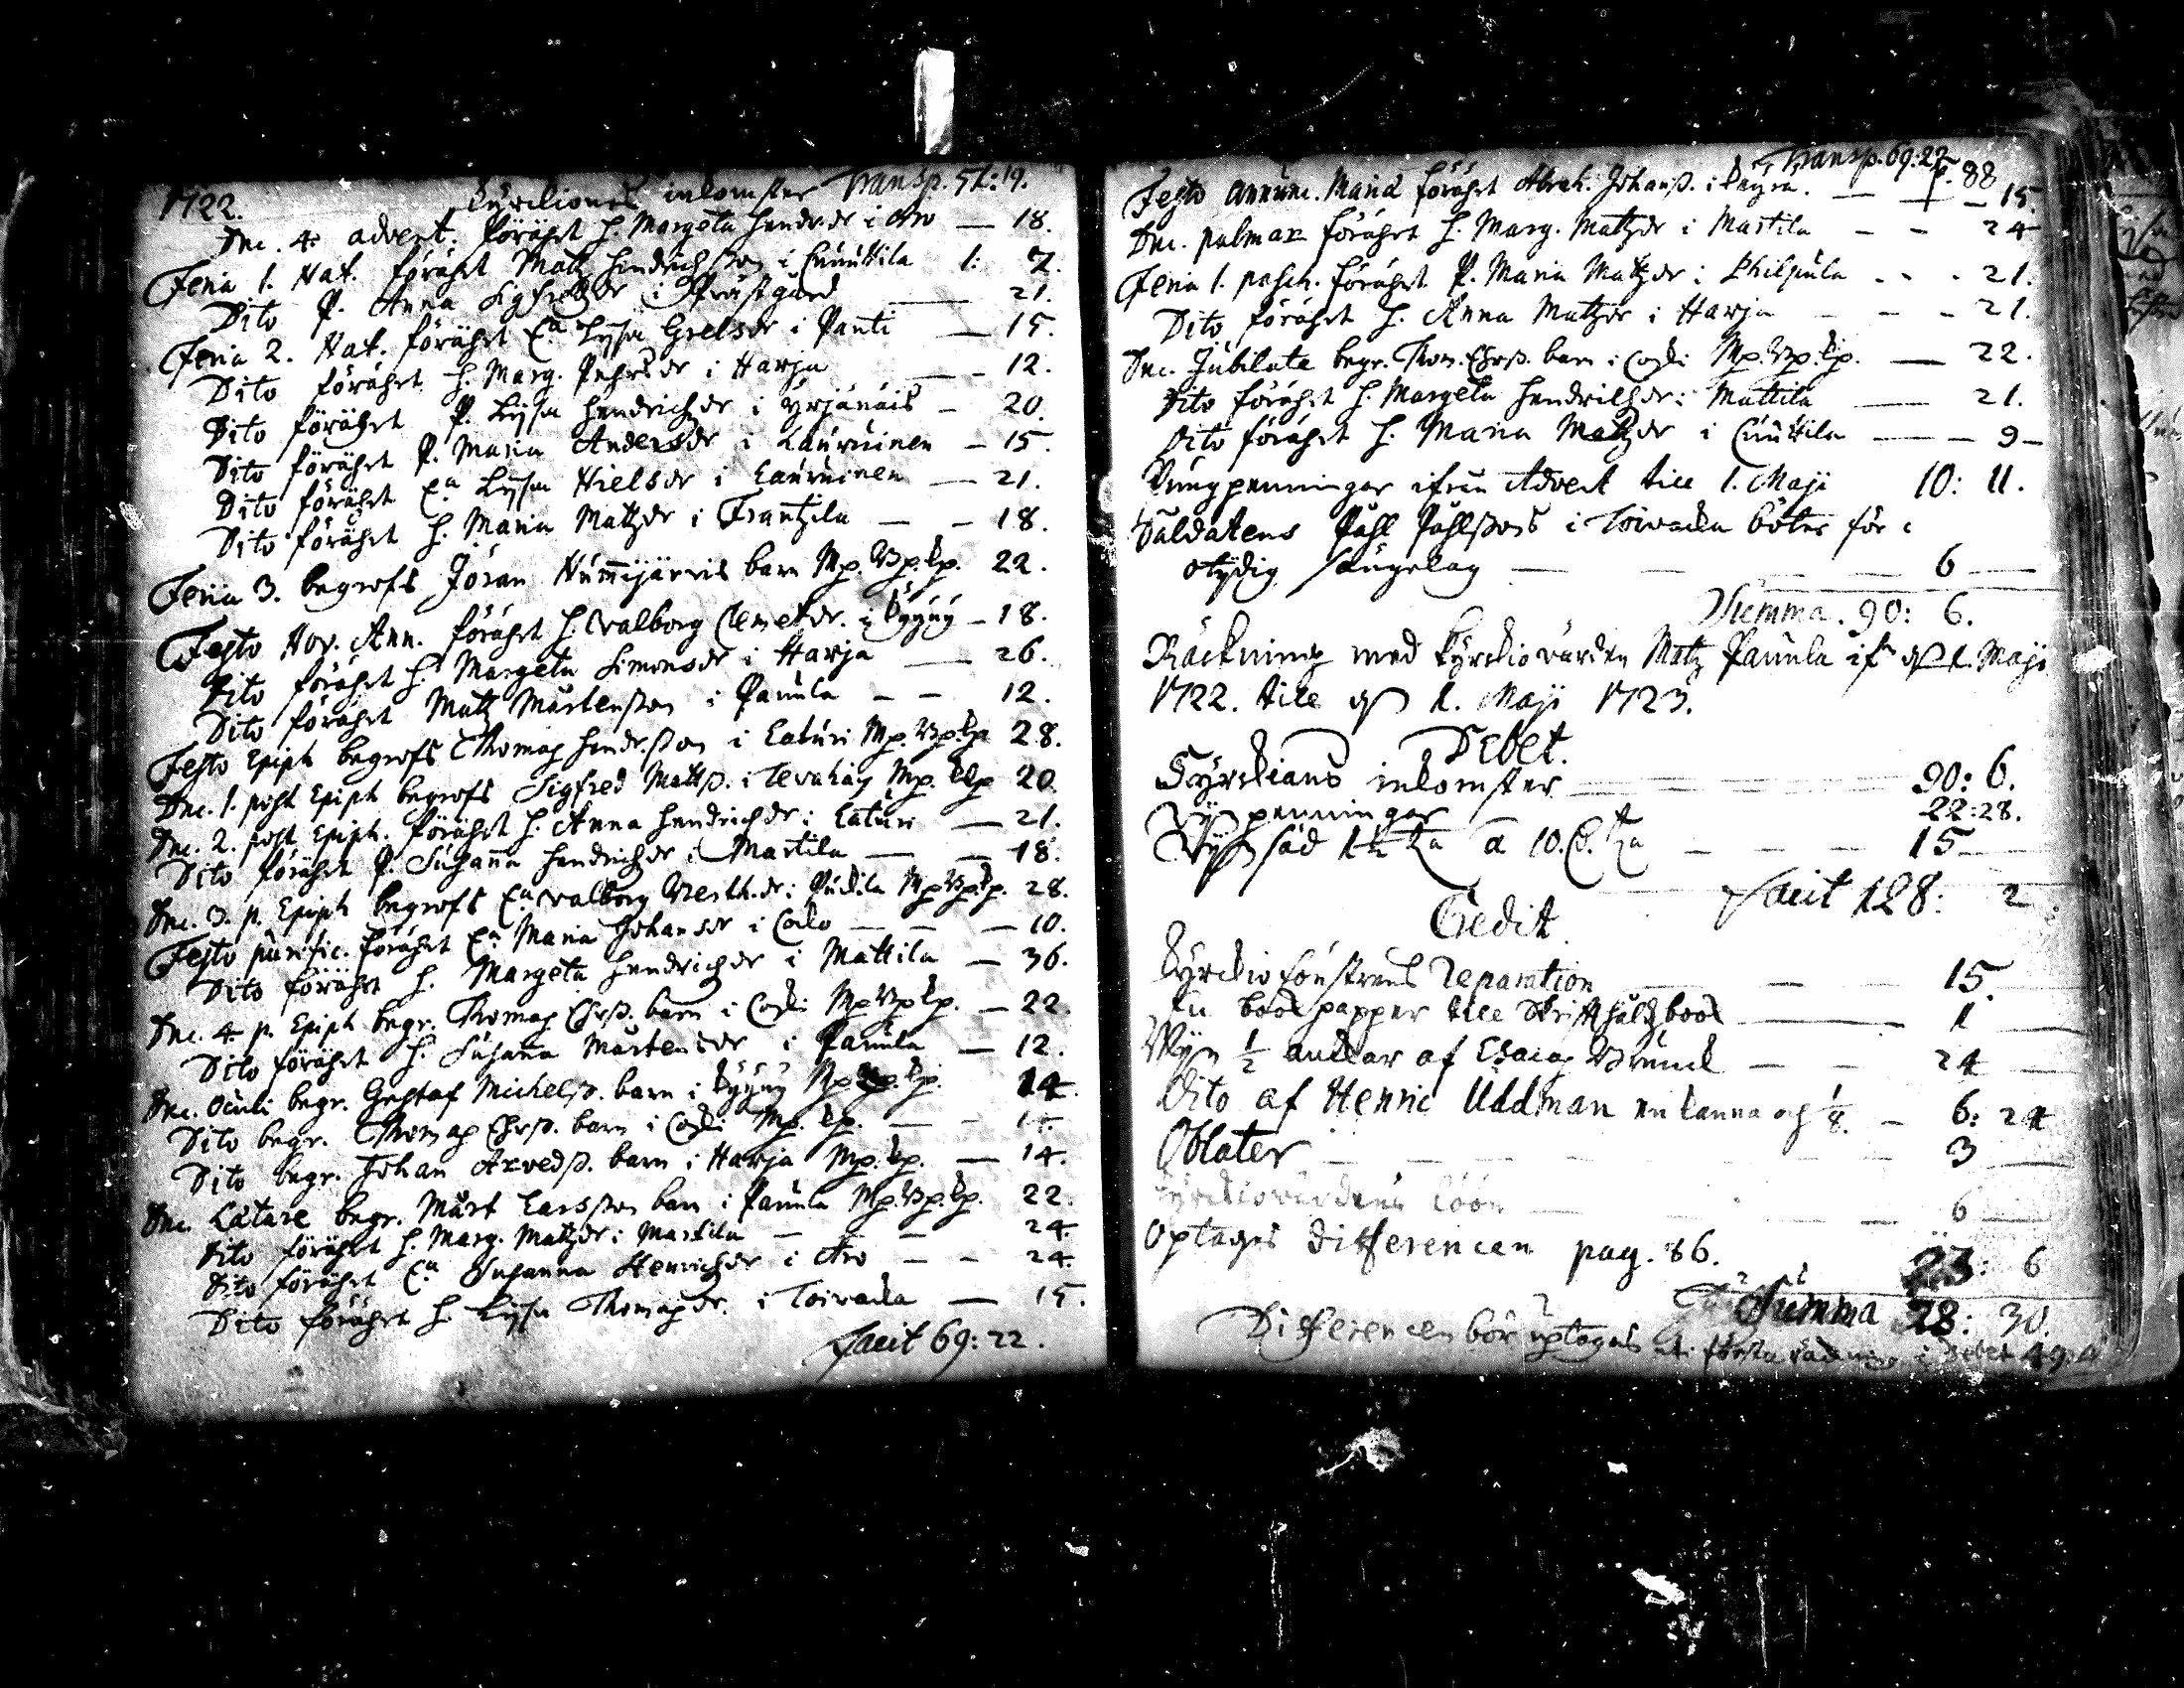 1722. Kyrkiones inkomster Transp. 51: 19.
Dnc. 4. advent. förährt H. Margeta Hendr.dr i Aro — 18.
Feria 1. Nat. förährt Matz Hendrichsson i Cnuuttila 1: 7.
Dito P. Anna Sigfredzdr i Prästgård — 21.
Feria 2. Nat. förährt E.a Lysa Grelsdr i Panti — 15.
Dito förährt H. Marg. Pehrsdr i Harja — 12.
Dito förährt P. Lysa Hendrichzdr i Yrjänäis — 20.
Dito förährt P. Maria Andersdr i Lauruinen — 15.
Dito förährt E.a Lysa Nielsdr i Lauruinen — 21.
Dito förährt H. Maria Matzdr i Frantzila — — 18.
Feria 3. begrofs Jöran Nummijärvis barn Mp. Bp. Kp. 22.
Festo Nov. Ann. förährt H. Valborg Clemetdr. i Kyyny — 18.
Dito förährt H. Margeta Simonsdr i Harja — 26.
Dito förährt Matz Mårtensson i Paunla — — 12.
Festo Epiph begrofs Thomas Hendersson i Laturi Mp. Bp. Kp 28.
Dnc. 1. post Epiph begrofs Sigfred Matss. i Tevahäy Mp. Kp 20.
Dnc. 2. post Epiph. förährt H. Anna Hendrichdr i Laturi — 21.
Dito förährt P. Susanna Hendrichdr i Martila — — 18.
Dnc. 3. p. Epiph begrofs E.a Valborg Berth.dr i Puckila Mp Bp. Kp. 28.
Festo purific. förährt E.a Maria Johansdr i Cocko — — 10.
Dito förährt H. Margeta Hendrichdr i Mattila — 36.
Dnc. 4 p. Epiph. begr. Thomas Chrss. barn i Coski Mp Bp Kp. — 22.
Dito förährt H. Susanna Mårtensdr i Paunla — 12.
Dnc. Oculi begr. Gustaf Michelss. barn i Kyyny Mp. Bp. Kp. 14.
Dito begr. Thomas Chrss. barn i Coski Mp. Kp. — — 14.
Dito begr. Johan Arvedss. barn i Harja Mp. Kp. — 14.
Dnc. Lätare begr. Mårt Larsson barn i Paunla Mp. Bp. Kp. 22.
Dito förährt H. Marg. Matzdr i Martila — — — 24.
Dito förährt E.a Susanna Henrichdr i Aro — — 24.
Dito förährt H. Lysa Thomasdr. i Toivacka — 15.
Facit 69: 22.
Transp. 69: 22
p. 88
Festo Annunc. Mariä förährt Abrah. Johanss. i — — 15.
Dnc. palmar förährt H. Marg. Matzdr i Martila — — 24
Feria 1. pasch. förährt P. Maria Matzdr i Philpula - - - 21.
Dito förährt H. Anna Matzdr i Harja — — — 21.
Dnc. Jubilate begr. Thom. Chrss. barn i Coski Mp. Bp. Kp. — 22.
Dito förährt H. Margeta Hendrichdr i Mattila — 21.
Dito förährt H. Maria Matzdr i Cnuuttila — — 9 —
Pungpenningar ifrån Advent till 1. Maji 10: 11.
Såldatens Påhl Påhlssons i Toivacka böter för
otydig sängelag — — — 6 —
Summa. 90: 6.
Räckning med kyrckiovärden Matz Paunla ifr 1. Maji
1722. till 1. Maji 1723.
Debet.
Kyrckians inkomster — — — 90: 6.
penningar 22: 28.
säd 1½ ta a 10. ta — — — 15 —
Facit 128: 2
Credit.
Kyrckio fönstrens reparation — — 15.
En book papper till Skriftshåldz book — 1 —
Wijn ½ anckar af Esaias Brunck — — 24 —
Dito af Henric Uddman en kanna och 1/8. — 6: 24
Oblater — — — 3 —
Kyrckiovärdens löön — — — 6 —
Optages differencen pag. 86. 23: 6
Summa 28: 30.
Differencen bör uptagas första i Debet 49.